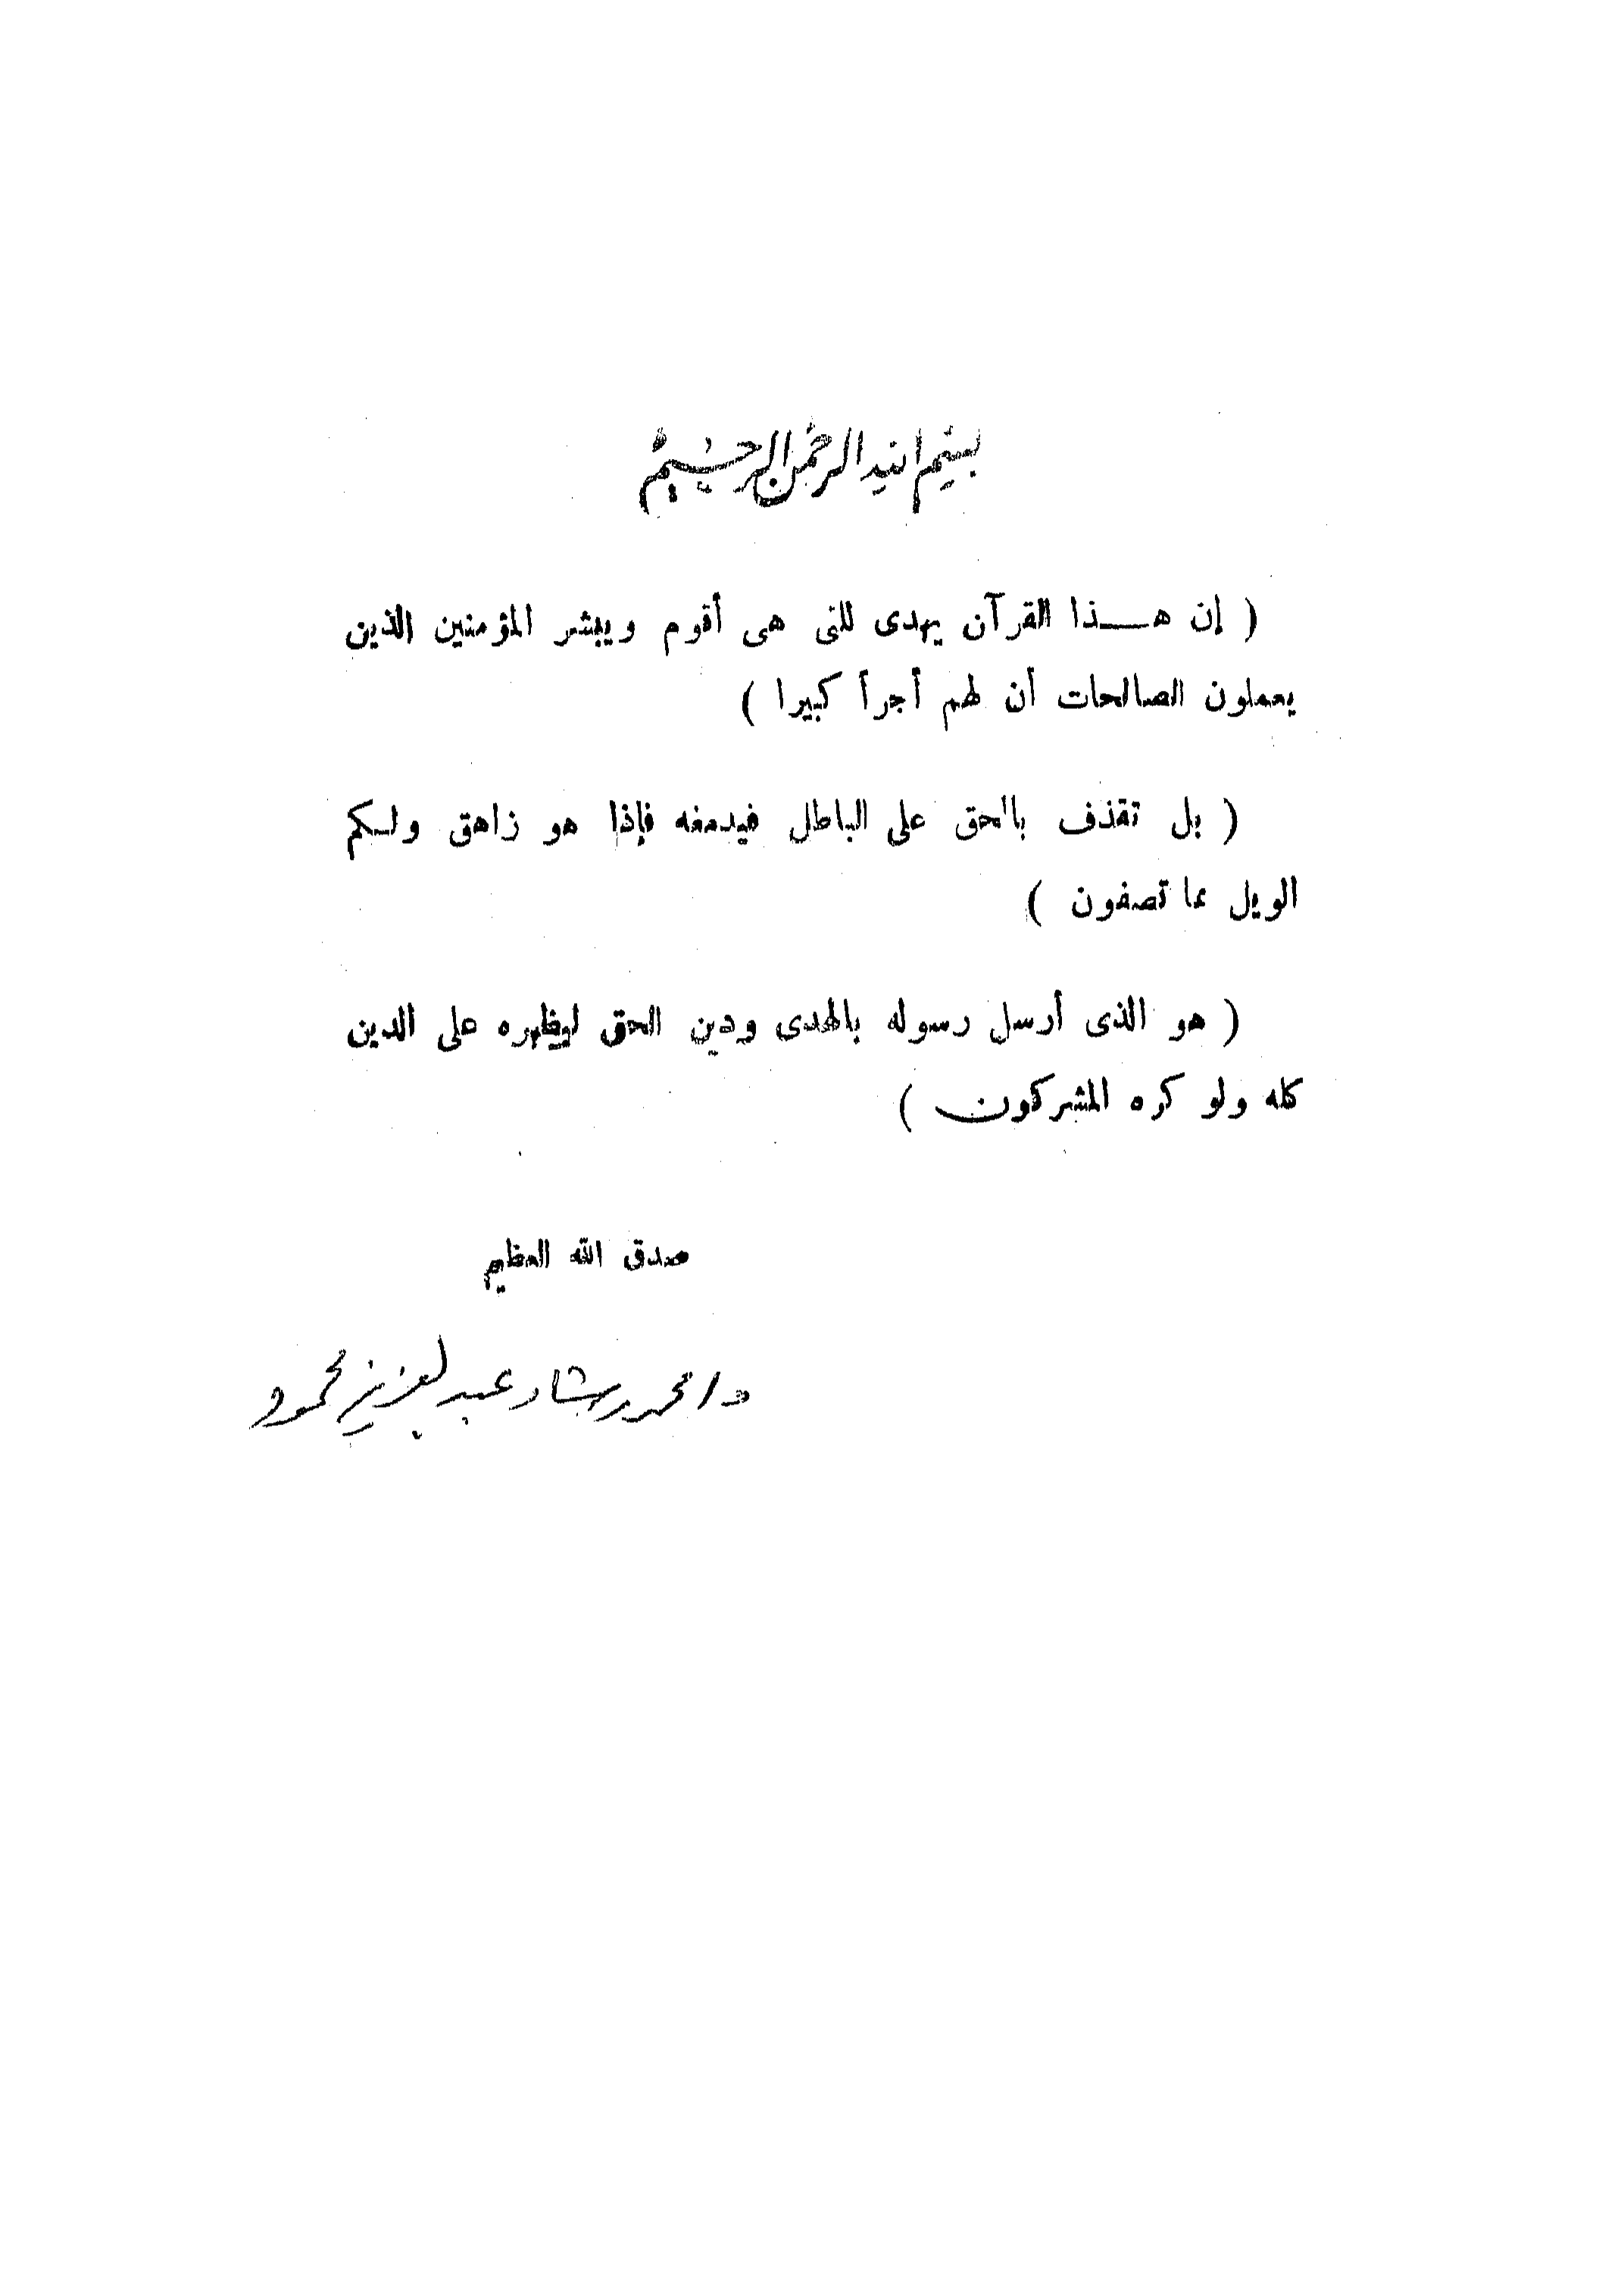 بسم الله الرحمن الرحيم
( إن هـــذا القرآن يهدى للتى هى أقوم ويبشر المؤمنين الذين
يعملون الصالحات أن لهم أجرأ كبيرا )
( بل تقذف بالحق على الباطل فيدمغه فإذا هو زاهق ولكم
الويل مما تصفون )
( هو الذى أرسل رسوله بالهدى ودين الحق ليظهره على الدين
كله ولو كره المشركون )
صدق الله العظيم
د/ محمد رشاد عبد العزيز محمود